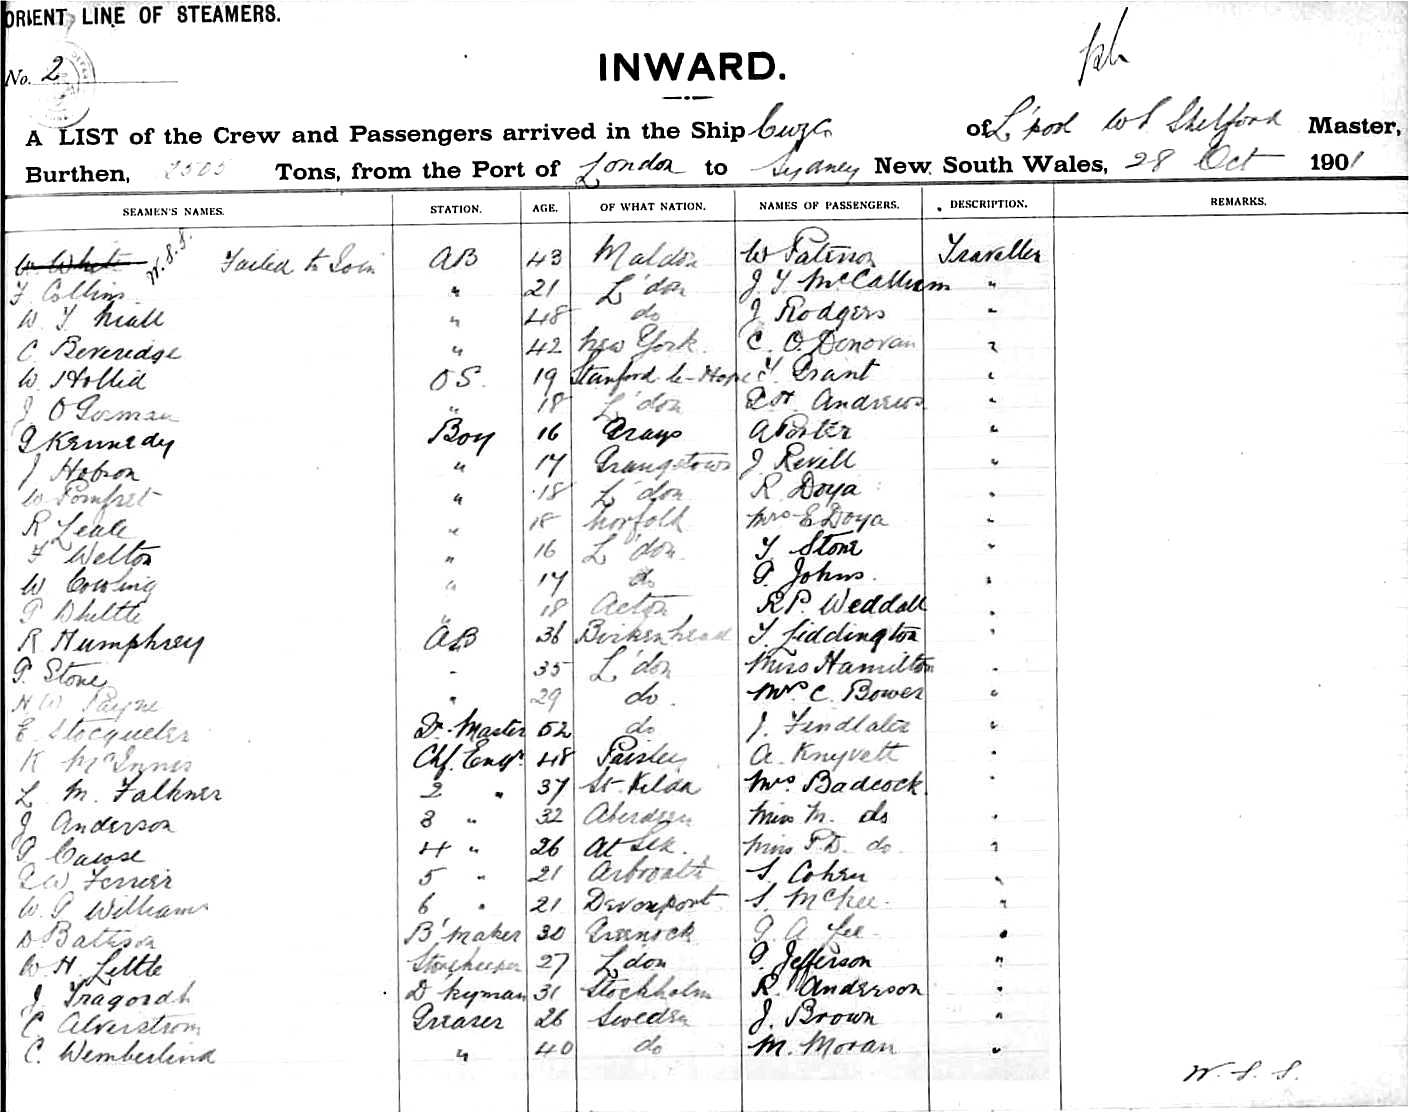 ORIENT LINE OF STEAMERS.
No. 2
INWARD.
A LIST of the Crew and Passengers arrived in the Ship Cuzco of L'pool W S Shelford Master,
Burthen, Tons, from the Port of London to Sydney New South Wales, 28 Oct 1901
SEAMEN'S NAMES. STATION. AGE. OF WHAT NATION. NAMES OF PASSENGERS. DESCRIPTION. REMARKS.
W White W.S.S. Failed to Join AB 43 Maldon W Paterson Traveller
F Collins " 21 L'don J Y McCallum "
W. T Niall " 48 do J Rodgers "
C Beveredge " 42 New York. C. O. Donovan "
W. Hollid OS. 19 Stanford le-Hope Grant "
J O Gorman " 18 L'don Andrews "
Kennedy Boy 16 Grays A Porter "
J Hobson " 17 Grangetown J Revill "
W Pomfret " 18 L'don R Doya "
R Leale " 18 Norfolk Mrs E Doya "
F Welton " 16 L'don T Stone "
W Cowling " 17 do Johns. "
" 18 Acton R P. Weddall "
R Humphrey AB 36 Birkenhead T. Liddington "
Stone " 35 L'don Miss Hamilton "
H W Payne " 29 do. Mrs C. Bower "
E Stocqueler Master 52 do J. Findlater "
K McInnes Chf. Engr. 48 Paisley A. Knyvett "
L M. Falkner 2 " 37 St. Kilda Mrs. Badcock "
J Anderson 3 " 32 Aberdeen Miss M. do "
4 " 26 At Sea. Miss do. "
W Ferrier 5 " 21 Arbroath S. Cohen "
W. Williams 6 " 21 Devonport. S. McKee. "
D Batison B'maker 30 Greenock A Lee "
W. H. Little Storekeeper 27 L'don Jefferson "
J Tragordh D kyman 31 Stockholm R. Anderson "
C Alverstrom Greaser 26 Sweden J. Brown "
C. Wemberlind " 40 do M. Moran "
W.S.S.